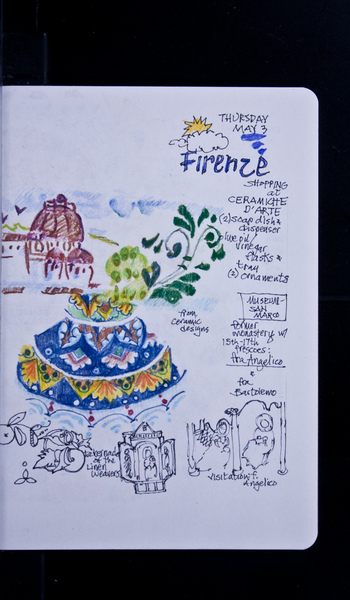 THURSDAY
MAY 3
Firenze
SHOPPING
at
CERAMICHE
D'ARTE
(2) soap dish &
dispenser
olive oil/
vinegar
flasks &
tray
(2) ornaments
from
ceramic
designs
MUSEUM-
SAN
MARCO
former
monastery w/
15th-17th
frescoes:
fra Angelico
&
fra
Bartolemo
tabernacle
of the
Linen
Weavers
visitation f.
Angelico